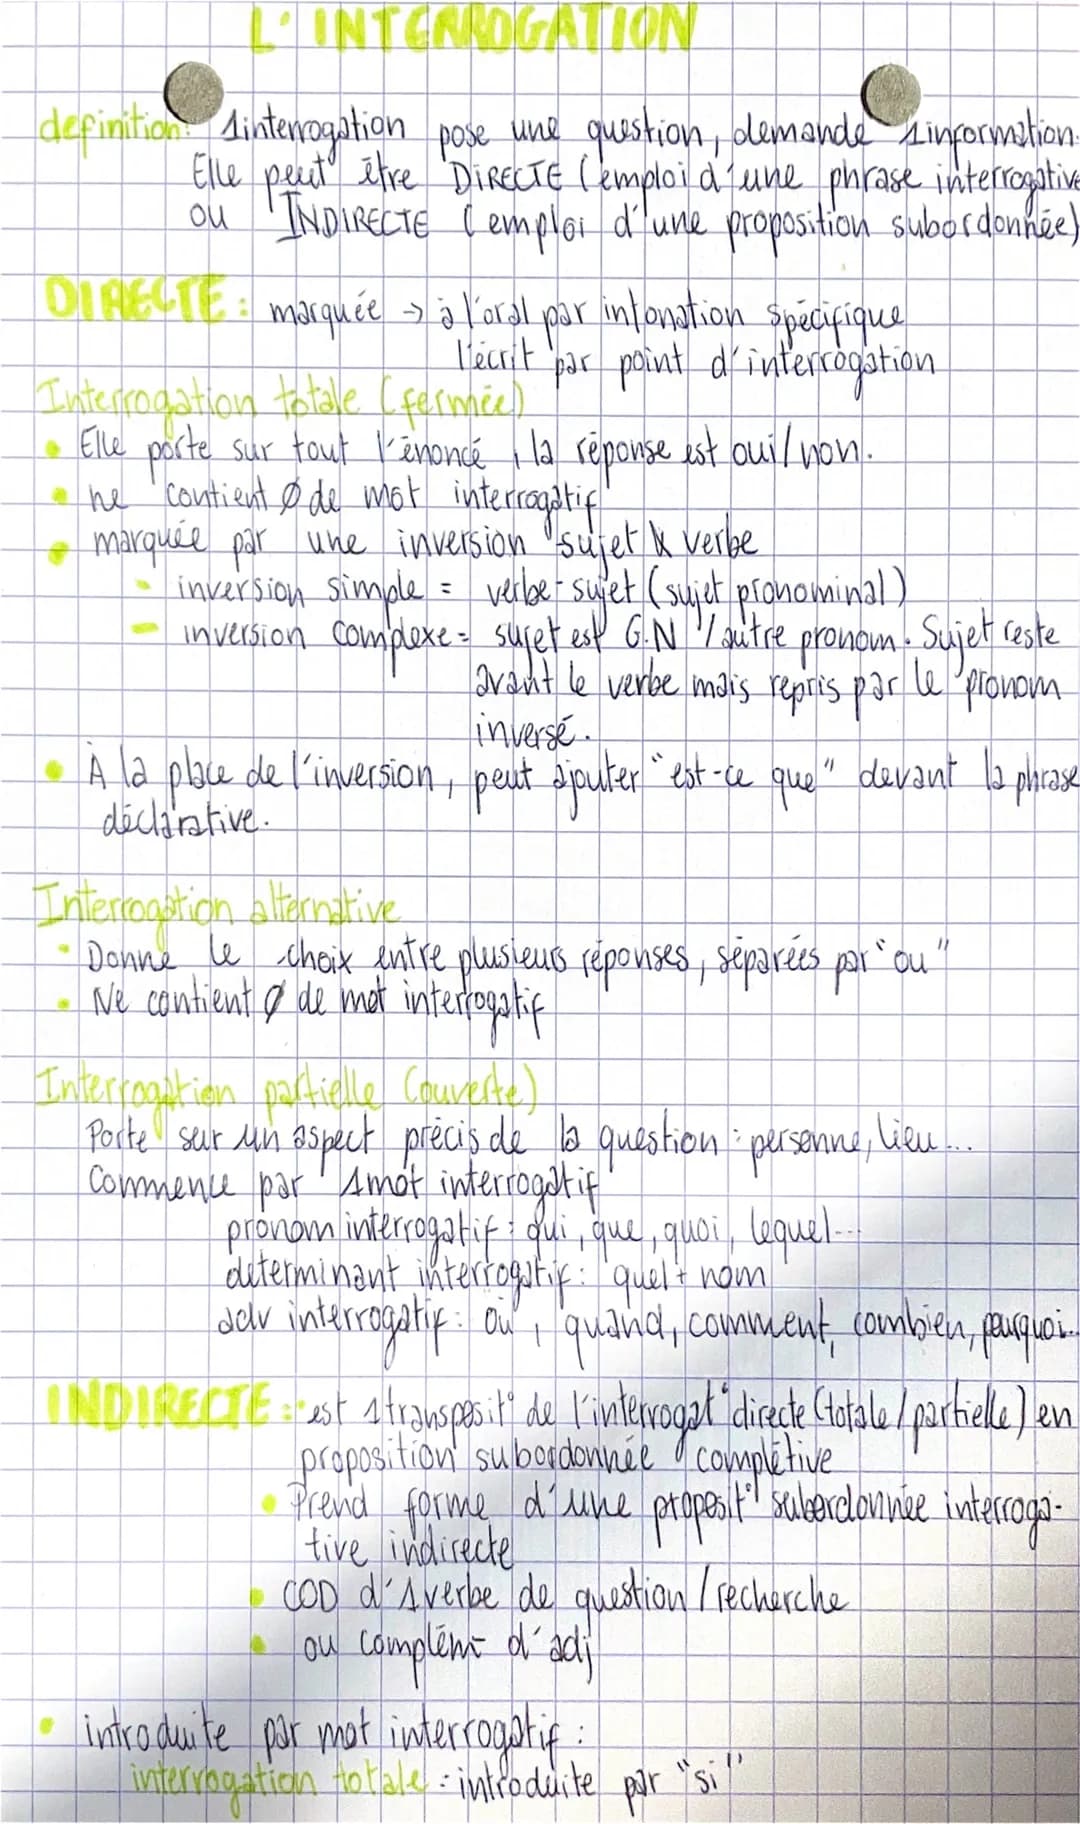 L'INTERROGATION
definition: 1interrogation pose une question, demande 1information.
Elle peut être DIRECTE (emploi d'une phrase interrogative
ou INDIRECTE (emploi d'une proposition subordonnée)
DIRECTE: marquée → à l'oral par intonation spécifique
l'écrit par point d'interrogation
Interrogation totale (fermée)
• Elle porte sur tout l'énoncé, la réponse est oui/non.
• ne contient Ø de mot interrogatif
• marquée par une inversion sujet & verbe
- inversion simple = verbe-sujet (sujet pronominal)
- inversion complexe = sujet est G.N / autre pronom. Sujet reste
avant le verbe mais repris par le pronom
inversé.
• À la place de l'inversion, peut ajouter "est-ce que" devant la phrase
déclarative.
Interrogation alternative
• Donne le choix entre plusieurs réponses, séparées par "ou"
• Ne contient Ø de mot interrogatif
Interrogation partielle (ouverte)
Porte sur un aspect précis de la question : personne, lieu...
Commence par 1mot interrogatif
pronom interrogatif : qui, que, quoi, lequel...
determinant interrogatif : quel + nom
adv interrogatif : où, quand, comment, combien, pourquoi..
INDIRECTE : • est 1transposit° de l'interrogat° directe (totale/partielle) en
proposition subordonnée complétive
• Prend forme d'une proposit° subordonnée interroga-
tive indirecte
• COD d'1verbe de question / recherche
• ou complémt d'adj
• introduite par mot interrogatif :
interrogation totale : introduite par "si"